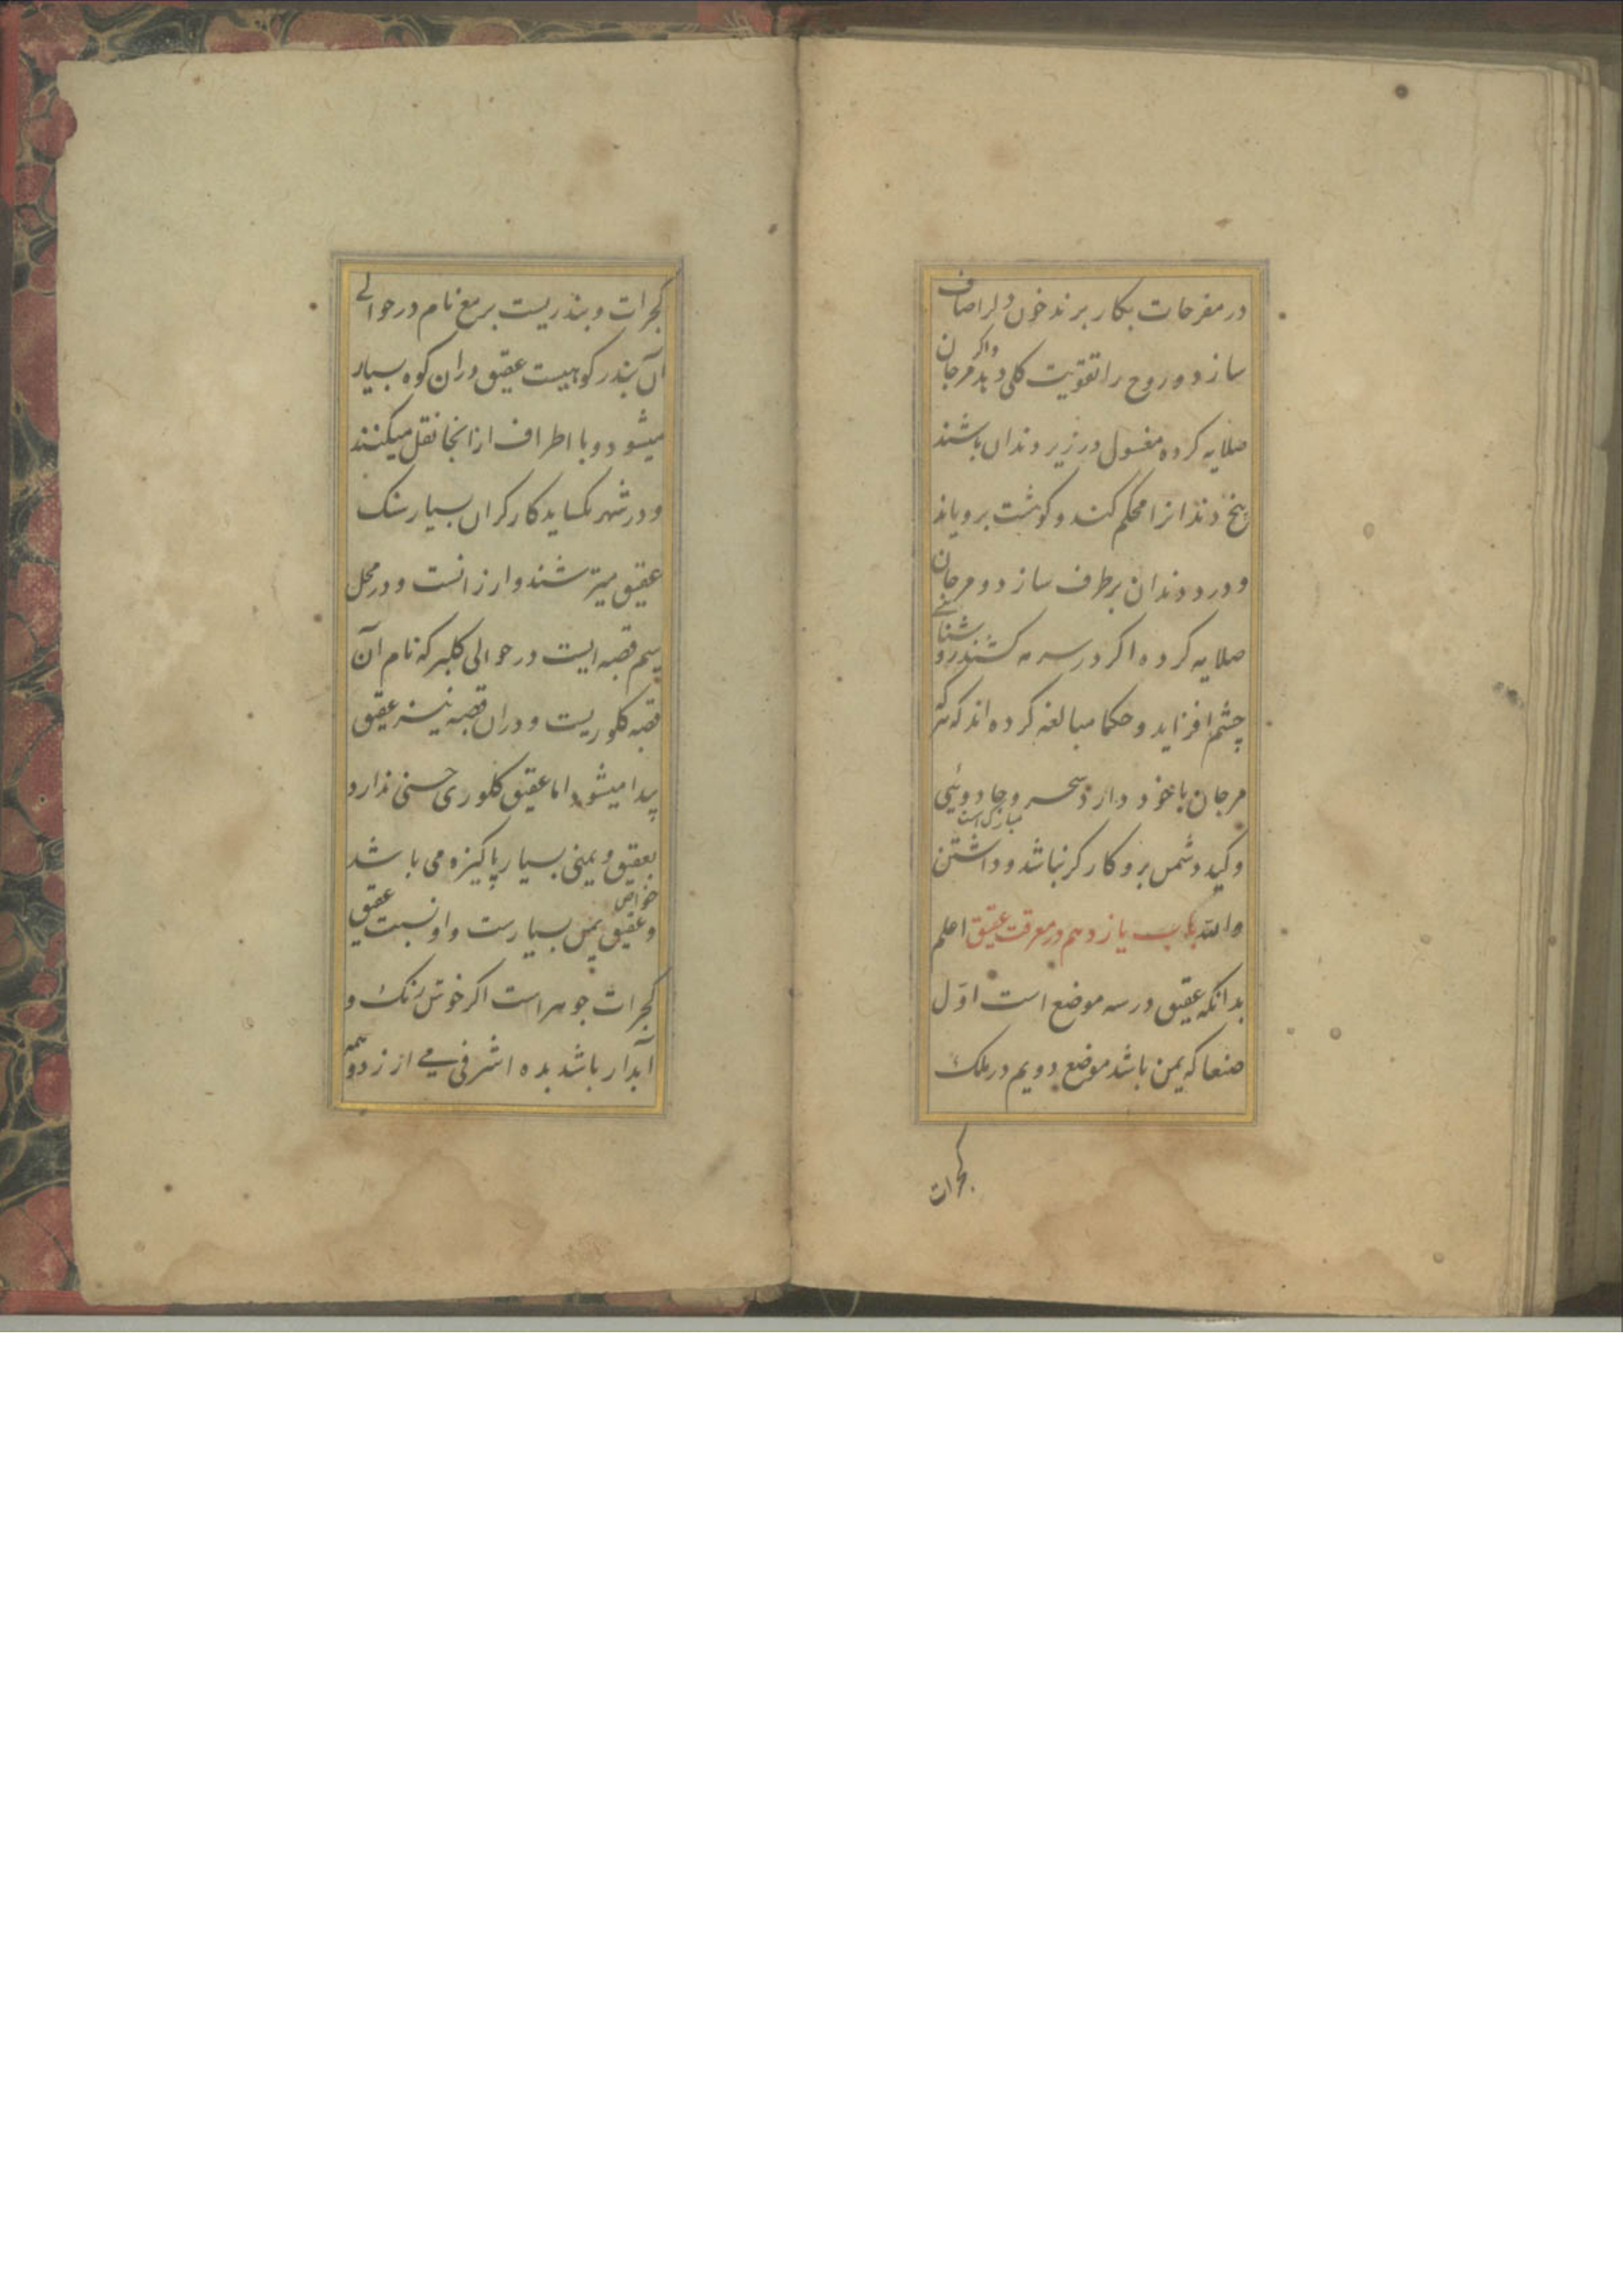 در مفرحات بکار برند خون دل را صاف
سازد و روح را تقویت کلی دهد و اکر مرجان
صلایه کرده مغسول در زیر دندان باشند
بیخ دندانرا محکم کند و کوشت برویاند
و درد دندان برطرف سازد و مرجان
صلایه کرده اکر در سرمه کشند روشنائے
چشم افزاید و حکما مبالغه کرده اند که هر که
مرجان با خود دارد سحر و جادوئی
و کید دشمن برو کارکر نباشد و داشتن مبارک است
والله باب یازدهم در معرفت عقیق اعلم
بدانکه عقیق در سه موضع است اوّل
صنعا که یمن باشد موضع دویم در ملک
کجرات
کجرات و بندریست برمغ نام در حوالے
آن بندر کوهیست عقیق دران کوه بسیار
میشود و با اطراف ازانجا نقل میکنند
و در شهر کارکران بسیار سنک
عقیق میترشند و ارزانست و در محل
سیم قصبه ایست در حوالی کلبرکه نام آن
قصبه کلوریست و دران قصبه نیز عقیق
پیدا میشود اما عقیق کلوری حسنی ندارد
بعقیق و یمنی بسیار پاکیزه می باشد
و خواص عقیق یمن بسیارست و او نسبت عقیق
کجرات جوهر است اکر خوش رنک و
آبدار باشد بده اشرفی مے ارزد و همه